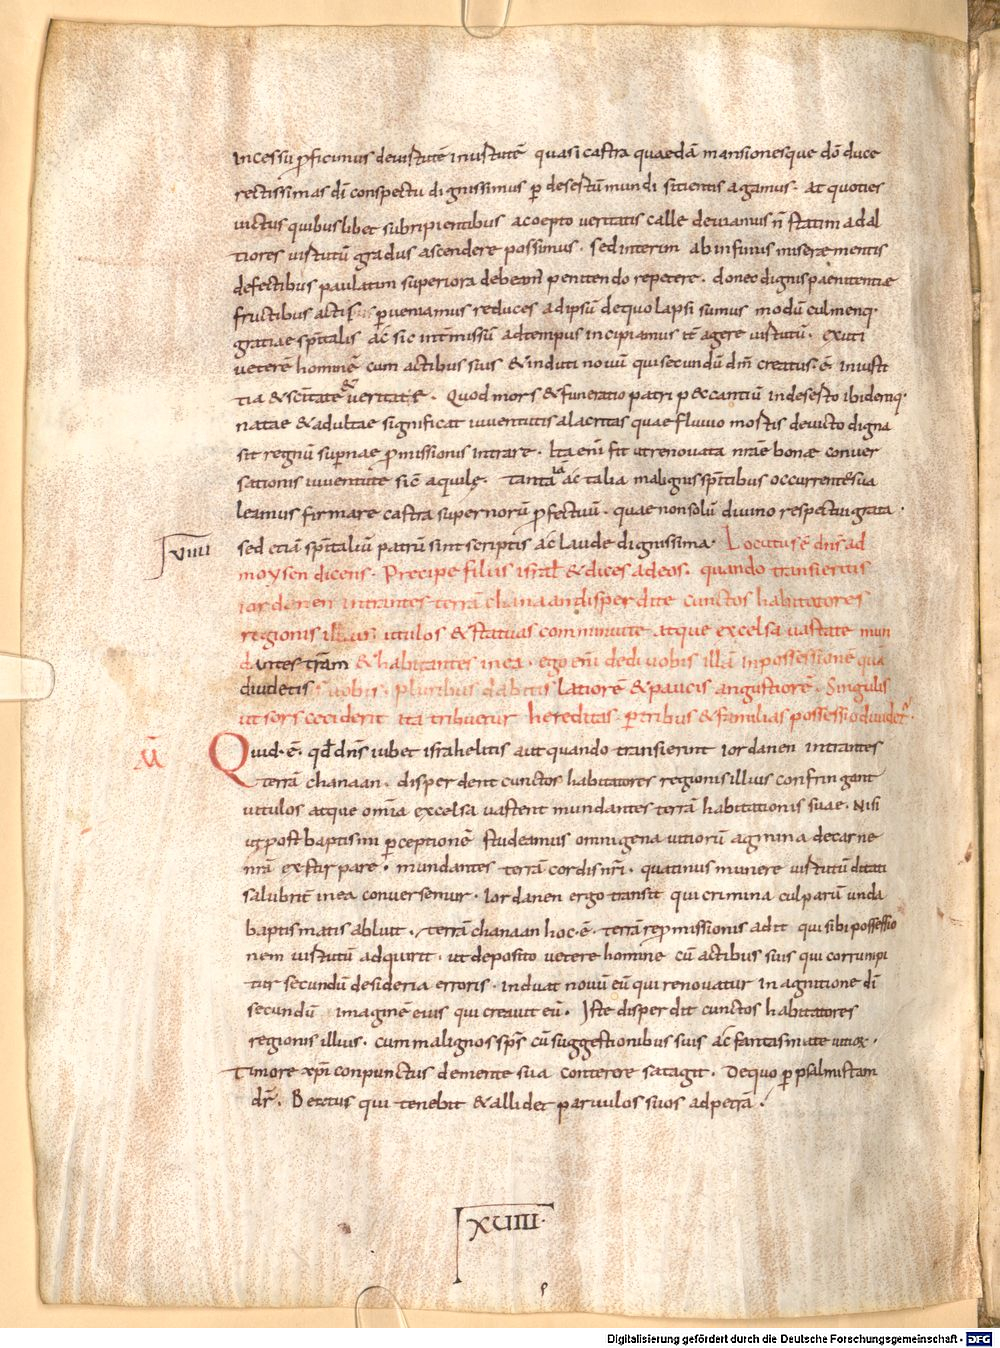 incessu ꝓficimus deuirtutē inuirtutē quasi castra quaedā mansionesque dō duce
rectissimas dī conspectu dignissimus ꝑ desertū mundi sitientis agamus. at quoties
uictus quibuslibet subripientibus accepto ueritatis calle deuiamus n̄ statim ad al
tiores uirtutū gradus ascendere possimus. sed interim ab infimis miserae mentis
defectibus paulatim superiora debeam̄ penitendo repetere. donec dignis paenitentiae
fructibus actis ꝑueniamus reduces ad ipsū dequo lapsi sumus modū culmenq.
gratiae spītalis ac̄ sic intmissū adtempus incipiamus it̄ agere uirtutū. exuti
ueterē hominē cum actibus suis &induti nouū qui secundū dm̄ creatus.ē iniusti
tia &sc̄itate & ueritate. Quod mors &funeratio patri p&cantiū indeserto ibidemq.
natae &adultae significat iuuentutis alacritas quae fluuio mortis deuicto digna
sit regnū suꝑnae ꝓmissionis intrare. Ita enī fit ut renouata nrāe bonae conuer
sationis iuuentute sic̄ aquilę. tantā ac̄ talia malignis spītibus occurrente sua
leamus firmare castra supernorū ꝓfectuū. quae nonsolū diuino respectui grata.
VIIII sed etiā spītaliū patrū sint scriptis ac̄ laude dignissima. Locutus ē dn̄s ad
moysen dicens. Precipe filiis isrl̄ & dices adeos. quando transieritis
iordanen intrantes terrā chanaan disperdite cunctos habitatores
regionis illius titulos &statuas comminuite atque excelsa uastate mun
dantes trām &habitantes inea. ego enī dedi uobis illā inpossessionē quā
diuidetis uobis. pluribus dabitis latiorē &paucis angustiorē. Singulis
ut sors ceciderit ita tribuetur hereditas. ꝑ tribus &familias possessio diuidet̄.
Quid.ē. qd̄ dn̄s iubet israhelitis aut quando transierint iordanen intrantes
terrā chanaan. disperdent cunctos habitatores regionis illius confringant
titulos atque omīa excelsa uastent mundantes terrā habitationis suae. Nisi
ut post baptismi ꝑceptionē studeamus omnigena uitiorū agmina decarne
nrā extirpare. mundantes terrā cordis nrī. quatinus munere uirtutū ditati
salubrit̄ inea conuersemur. Iordanen ergo transit qui crimina culparū unda
baptismatis abluit. terrā chanaan hoc.ē. terrā repꝓmissionis adit qui sibi possessio
nem uirtutū adquirit. ut deposito uetere homine cū actibus suis qui corrumpi
tur secundū desideria erroris. induat nouū eū qui renouatur in agnitione dī
secundū imaginē eius qui creauit eū. Iste disperdit cunctos habitatores
regionis illius. cum malignos sps̄ cū suggestionibus suis ac̄ fantasmate uitioꝝ.
Timore xp̄i conpunctus demente sua conterere satagit. Dequo ꝑ psalmistam
dr̄. Beatus qui tenebit &allidet paruulos suos adpetrā.
XVIIII